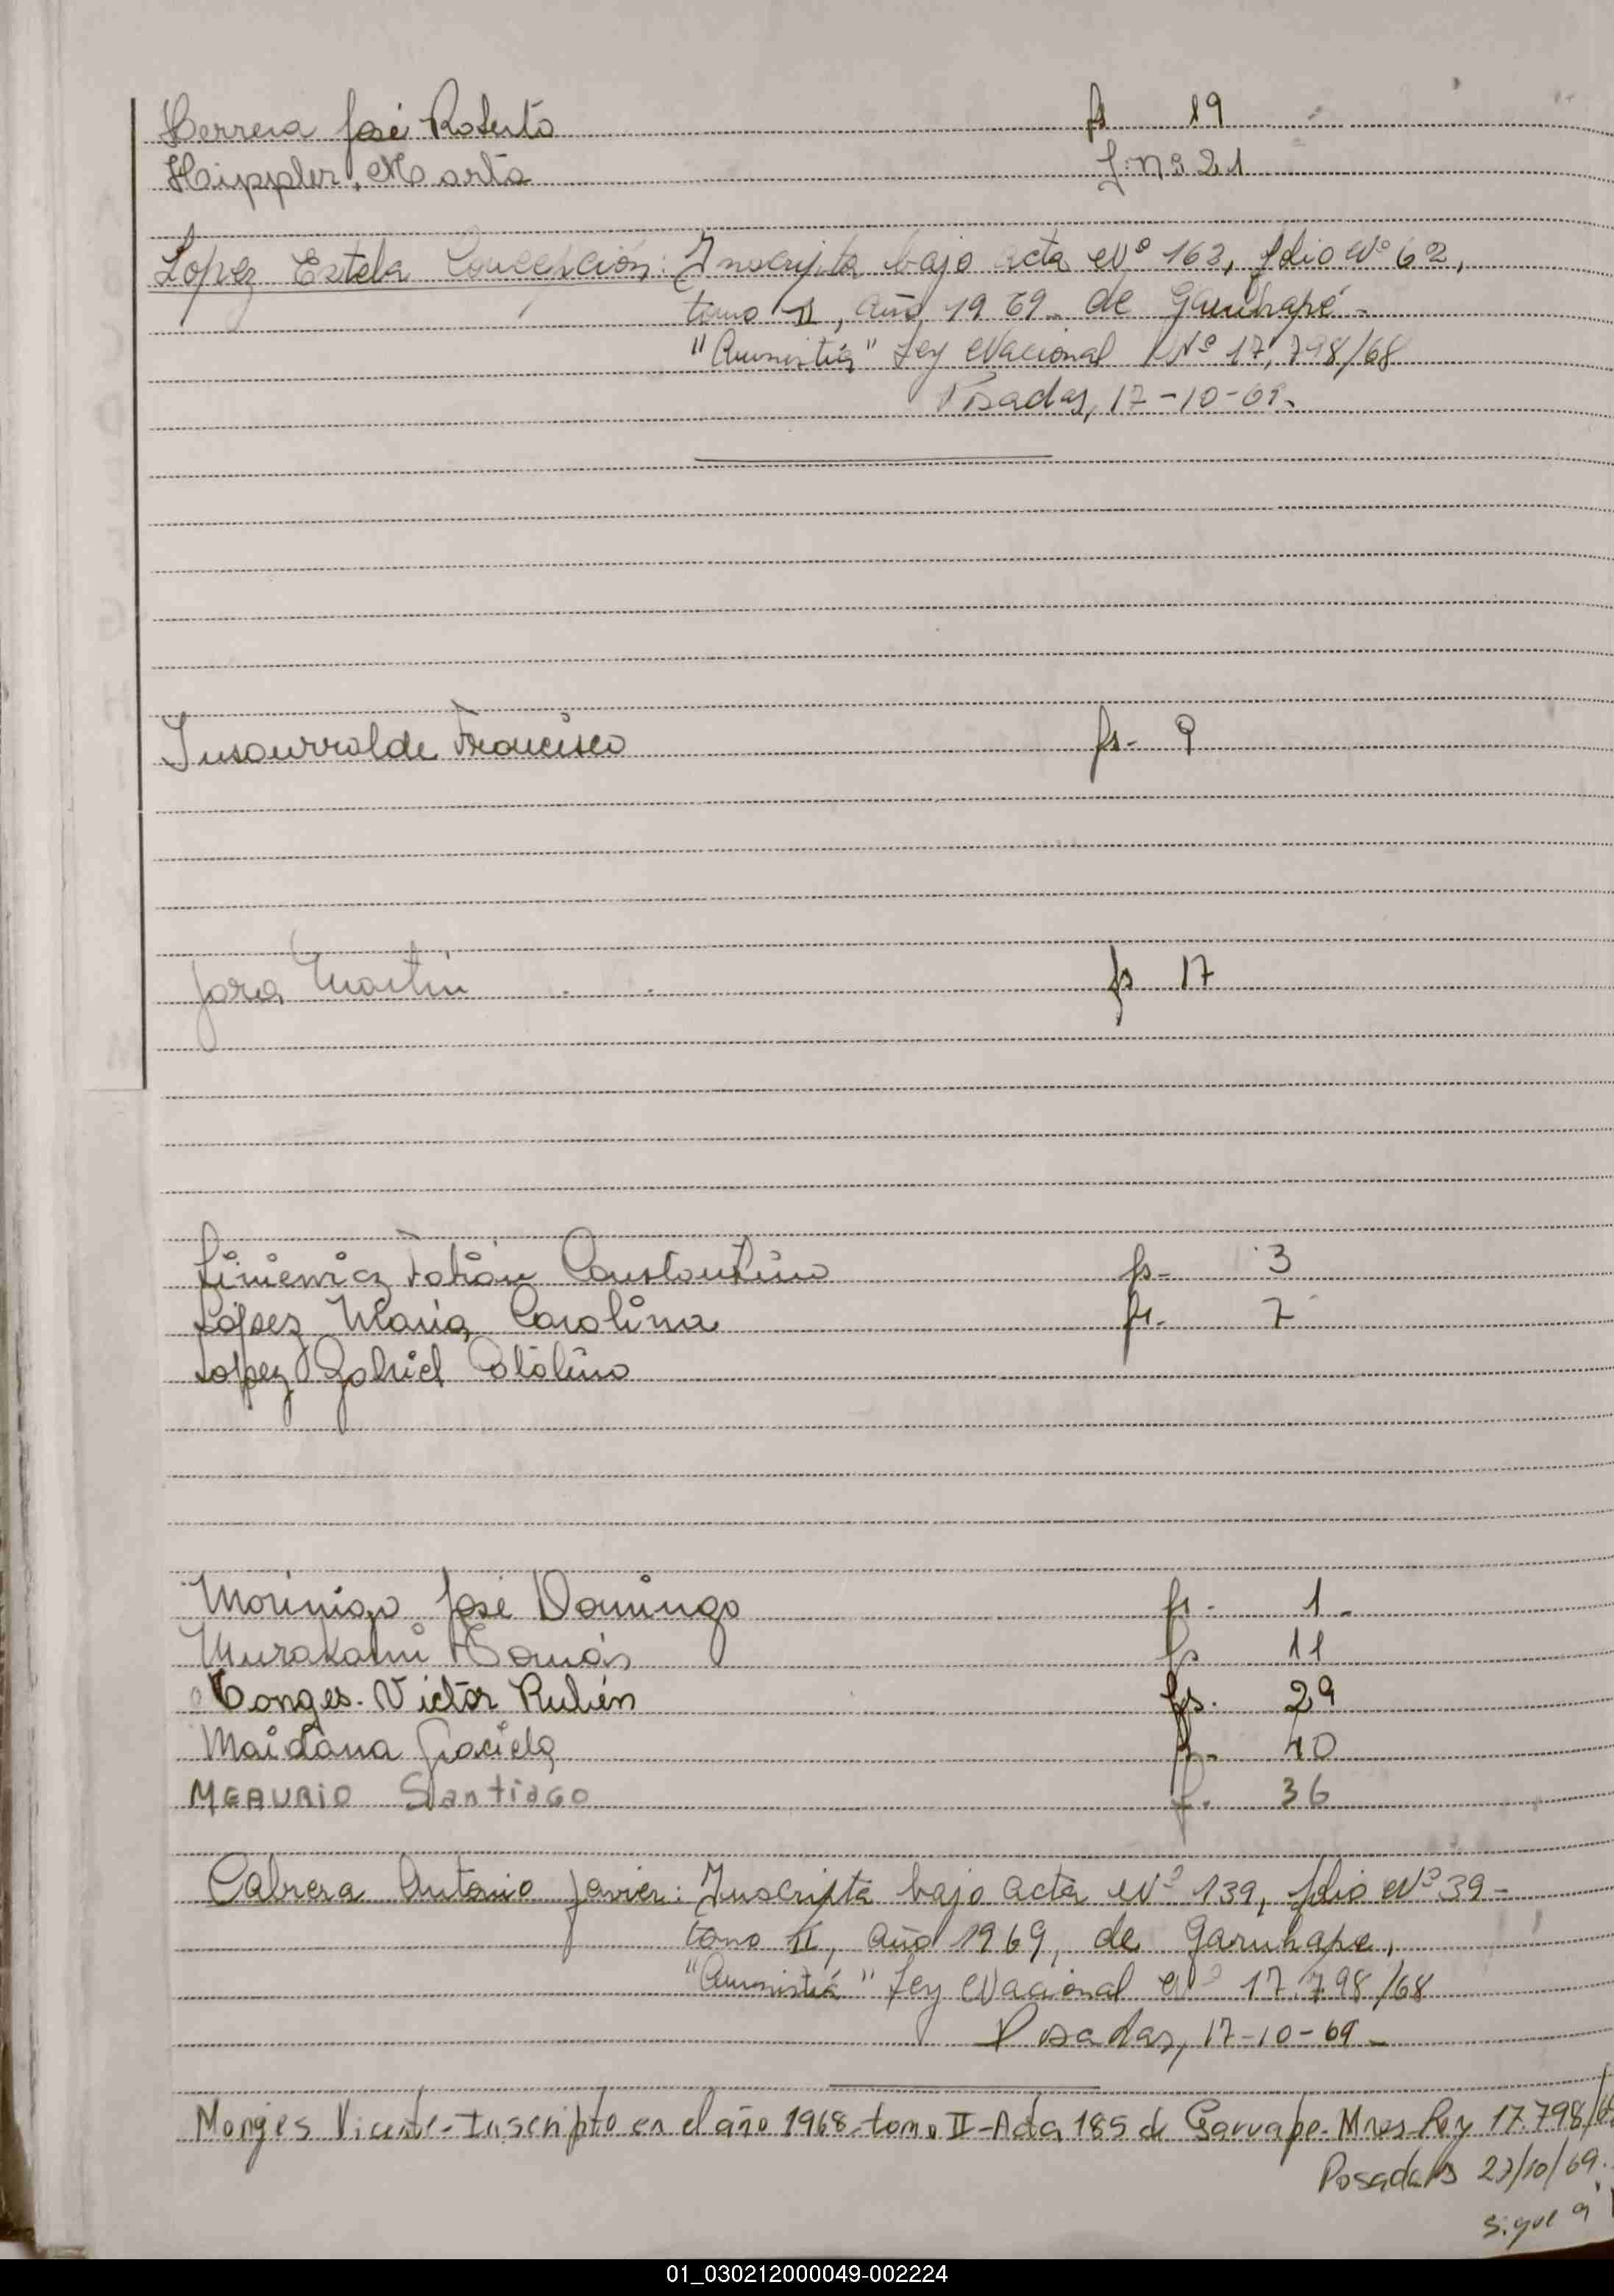 Herrera José Roberto fs 19
Hippler, Marta f. nº 21
Lopez Estela Concepción: Inscripta bajo acta Nº 163, folio Nº 62,
tomo II, año 1969 - de Garuhapé -
"Amnistía" Ley Nacional Nº 17,798/68
Posadas, 17-10-69.
Insaurralde Francisco fs- 9
Jara Martin fs 17
Constantino fs- 3
López María Carolina fs- 7
Lopez Gabriel Catalino
Morinigo José Domingo fs- 1-
Murakami Tomás fs 11
Monges Victor Rubén fs. 29
Maidana Graciela fs- 40
MEAURIO Santiago f. 36
Cabrera Antonio Javier: Inscripta bajo acta Nº 139, folio Nº 39-
tomo II, año 1969, de Garuhape,
"Amnistía" Ley Nacional Nº 17.798/68
Posadas, 17-10-69-
Monges Vicente-Inscripto en el año 1968-tomo II-Acta 185 de Garuape-Mnes-Ley 17.798/
Posadas 27/10/69.
sigue a
01_030212000049-002224